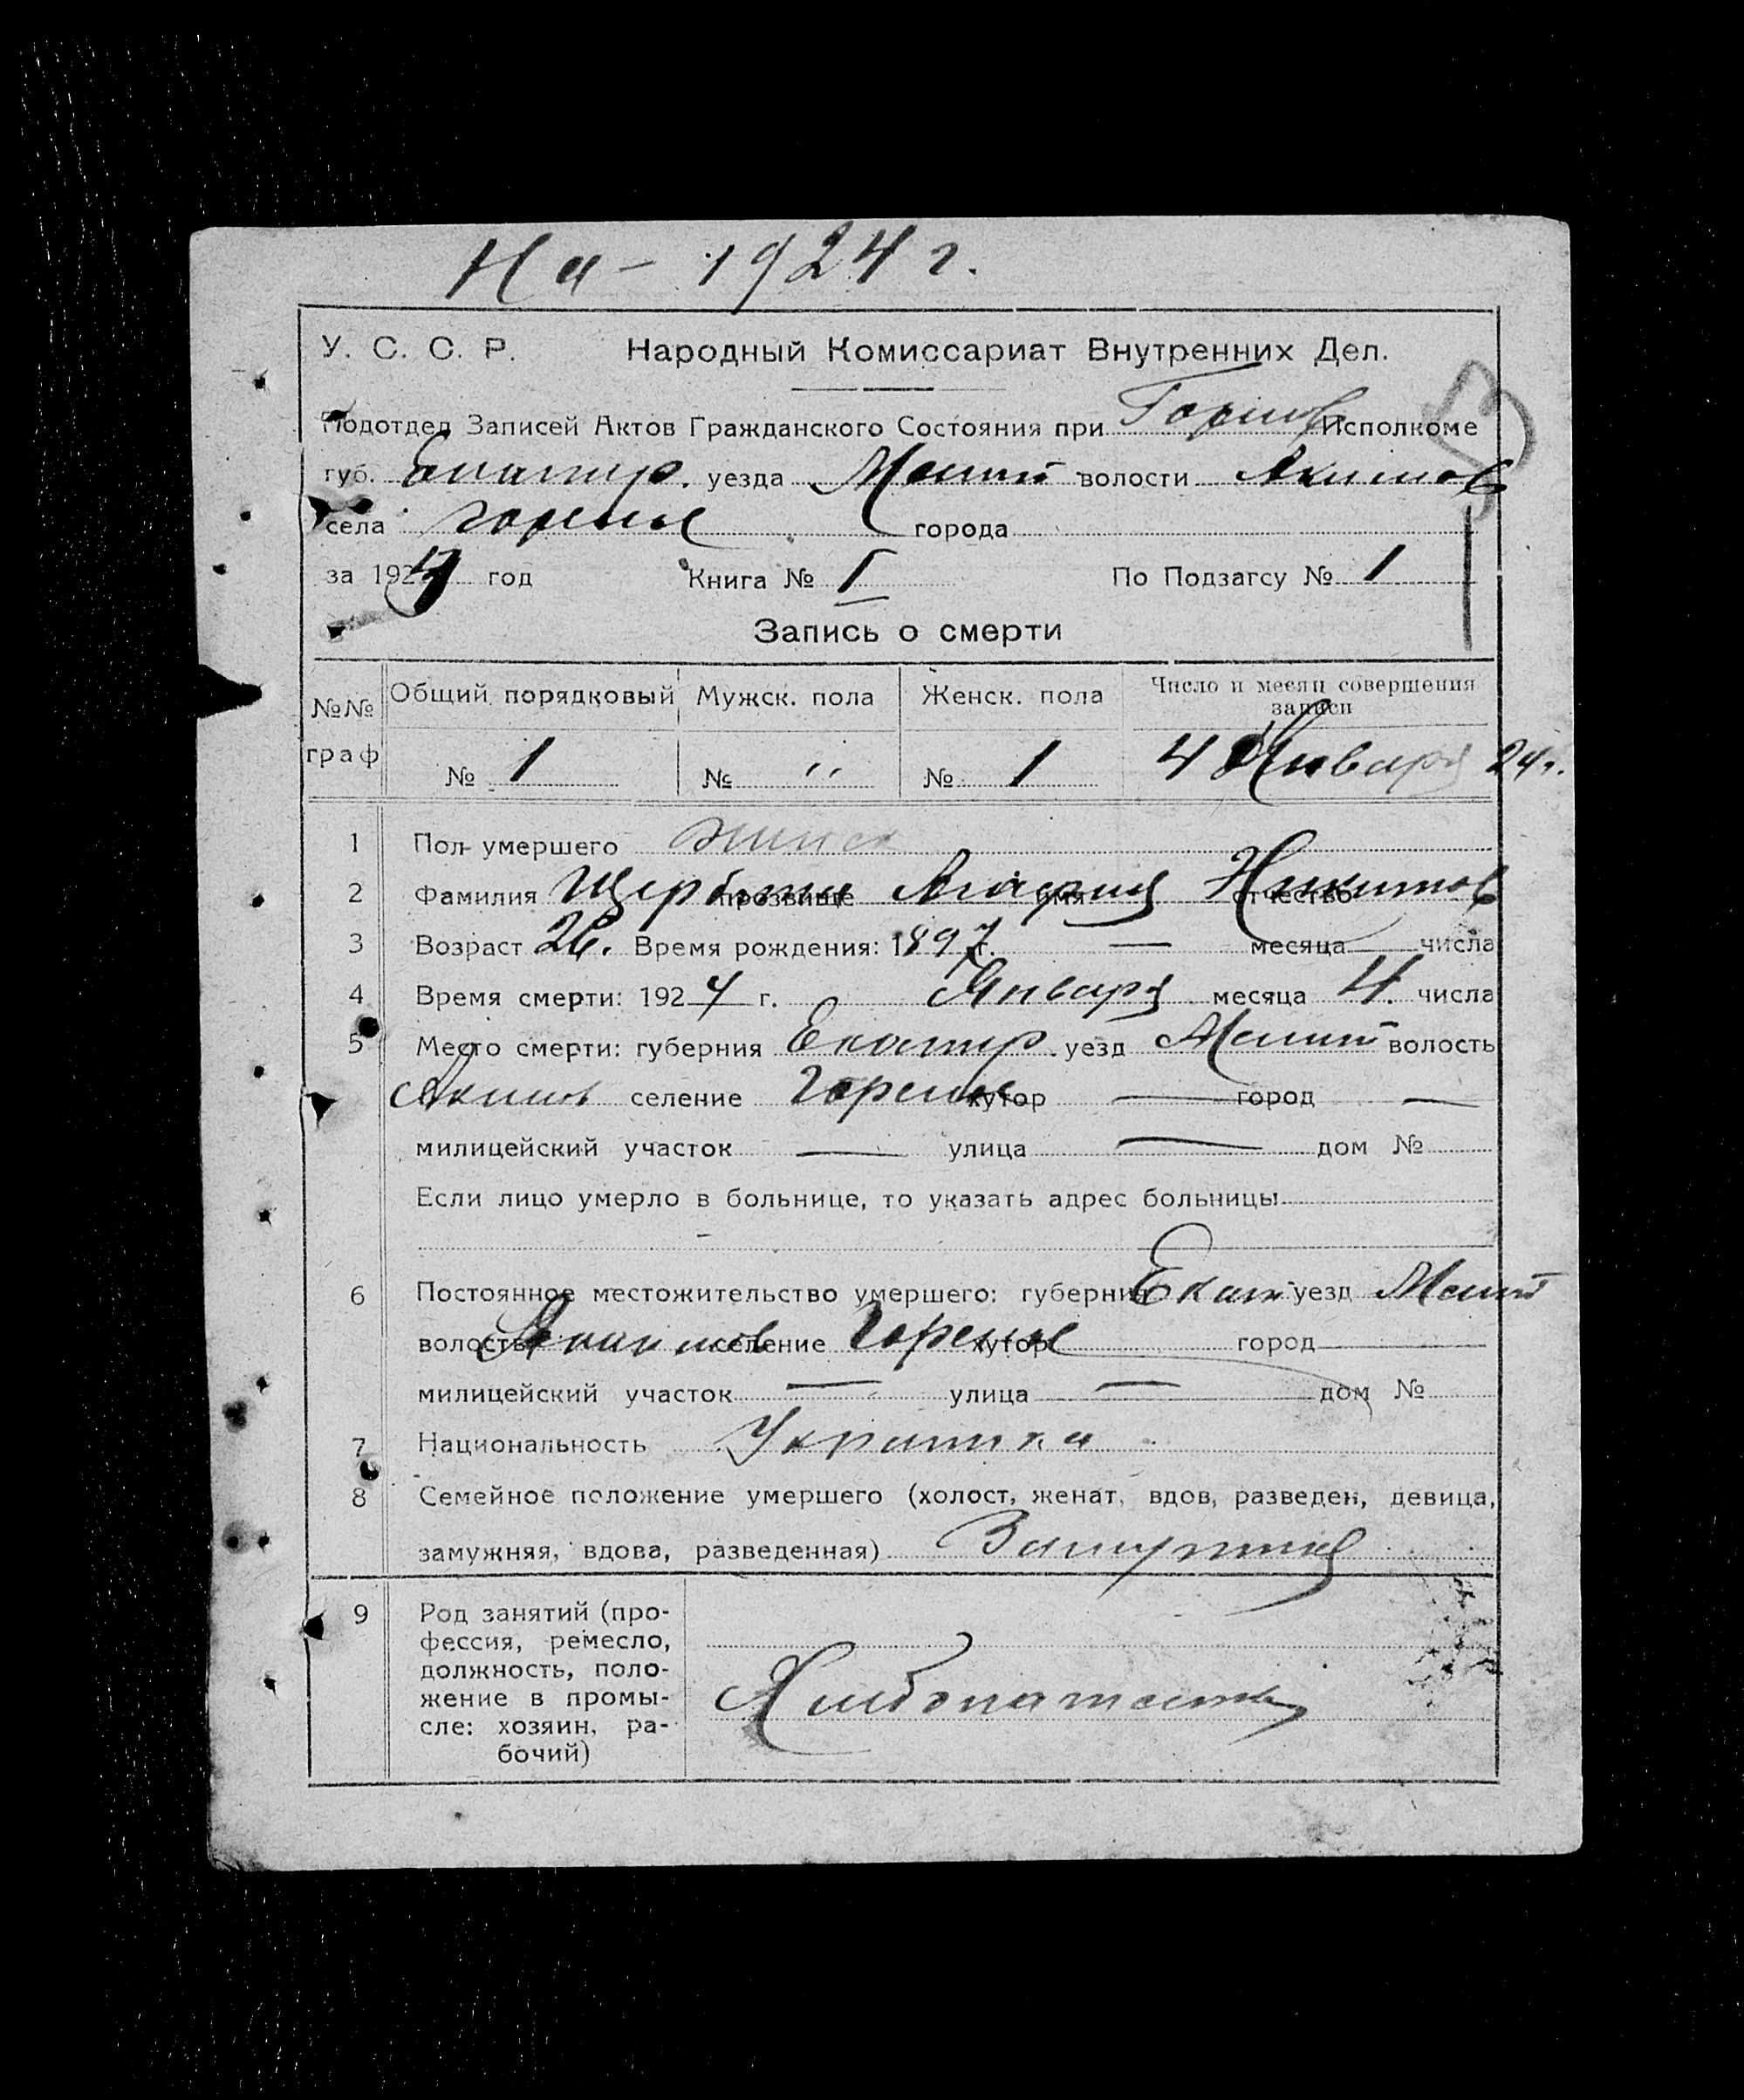 На - 1924 г.
У. С. С. Р. Народный Комиссариат Внутренних Дел.
Подотдел Записей Актов Гражданского Состояния при Исполкоме
губ. Екатер. уезда волости Акимов
села города
за 1924 год Книга № 1 По Подзагсу № 1
Запись о смерти
№№ граф Общий порядковый Мужск. пола Женск. пола Число и месяц совершения записи
№ 1 № " № 1 4 Января 24 г.
1 Пол умершего женск
2 Фамилия прозвище Агафия имя Никитов отчество
3 Возраст 26. Время рождения: 1897 г. — месяца — числа
4 Время смерти: 1924 г. Января месяца 4. числа
5 Место смерти: губерния Екатер. уезд волость
Акимов селение хутор — город —
милицейский участок — улица — дом №
Если лицо умерло в больнице, то указать адрес больницы
6 Постоянное местожительство умершего: губерния Екат уезд
волость Акимов селение хутор город
милицейский участок — улица — дом №
7 Национальность
8 Семейное положение умершего (холост, женат, вдов, разведен, девица,
замужняя, вдова, разведенная) Замужняя
9 Род занятий (про-
фессия, ремесло,
должность, поло-
жение в промы-
сле: хозяин, ра-
бочий)